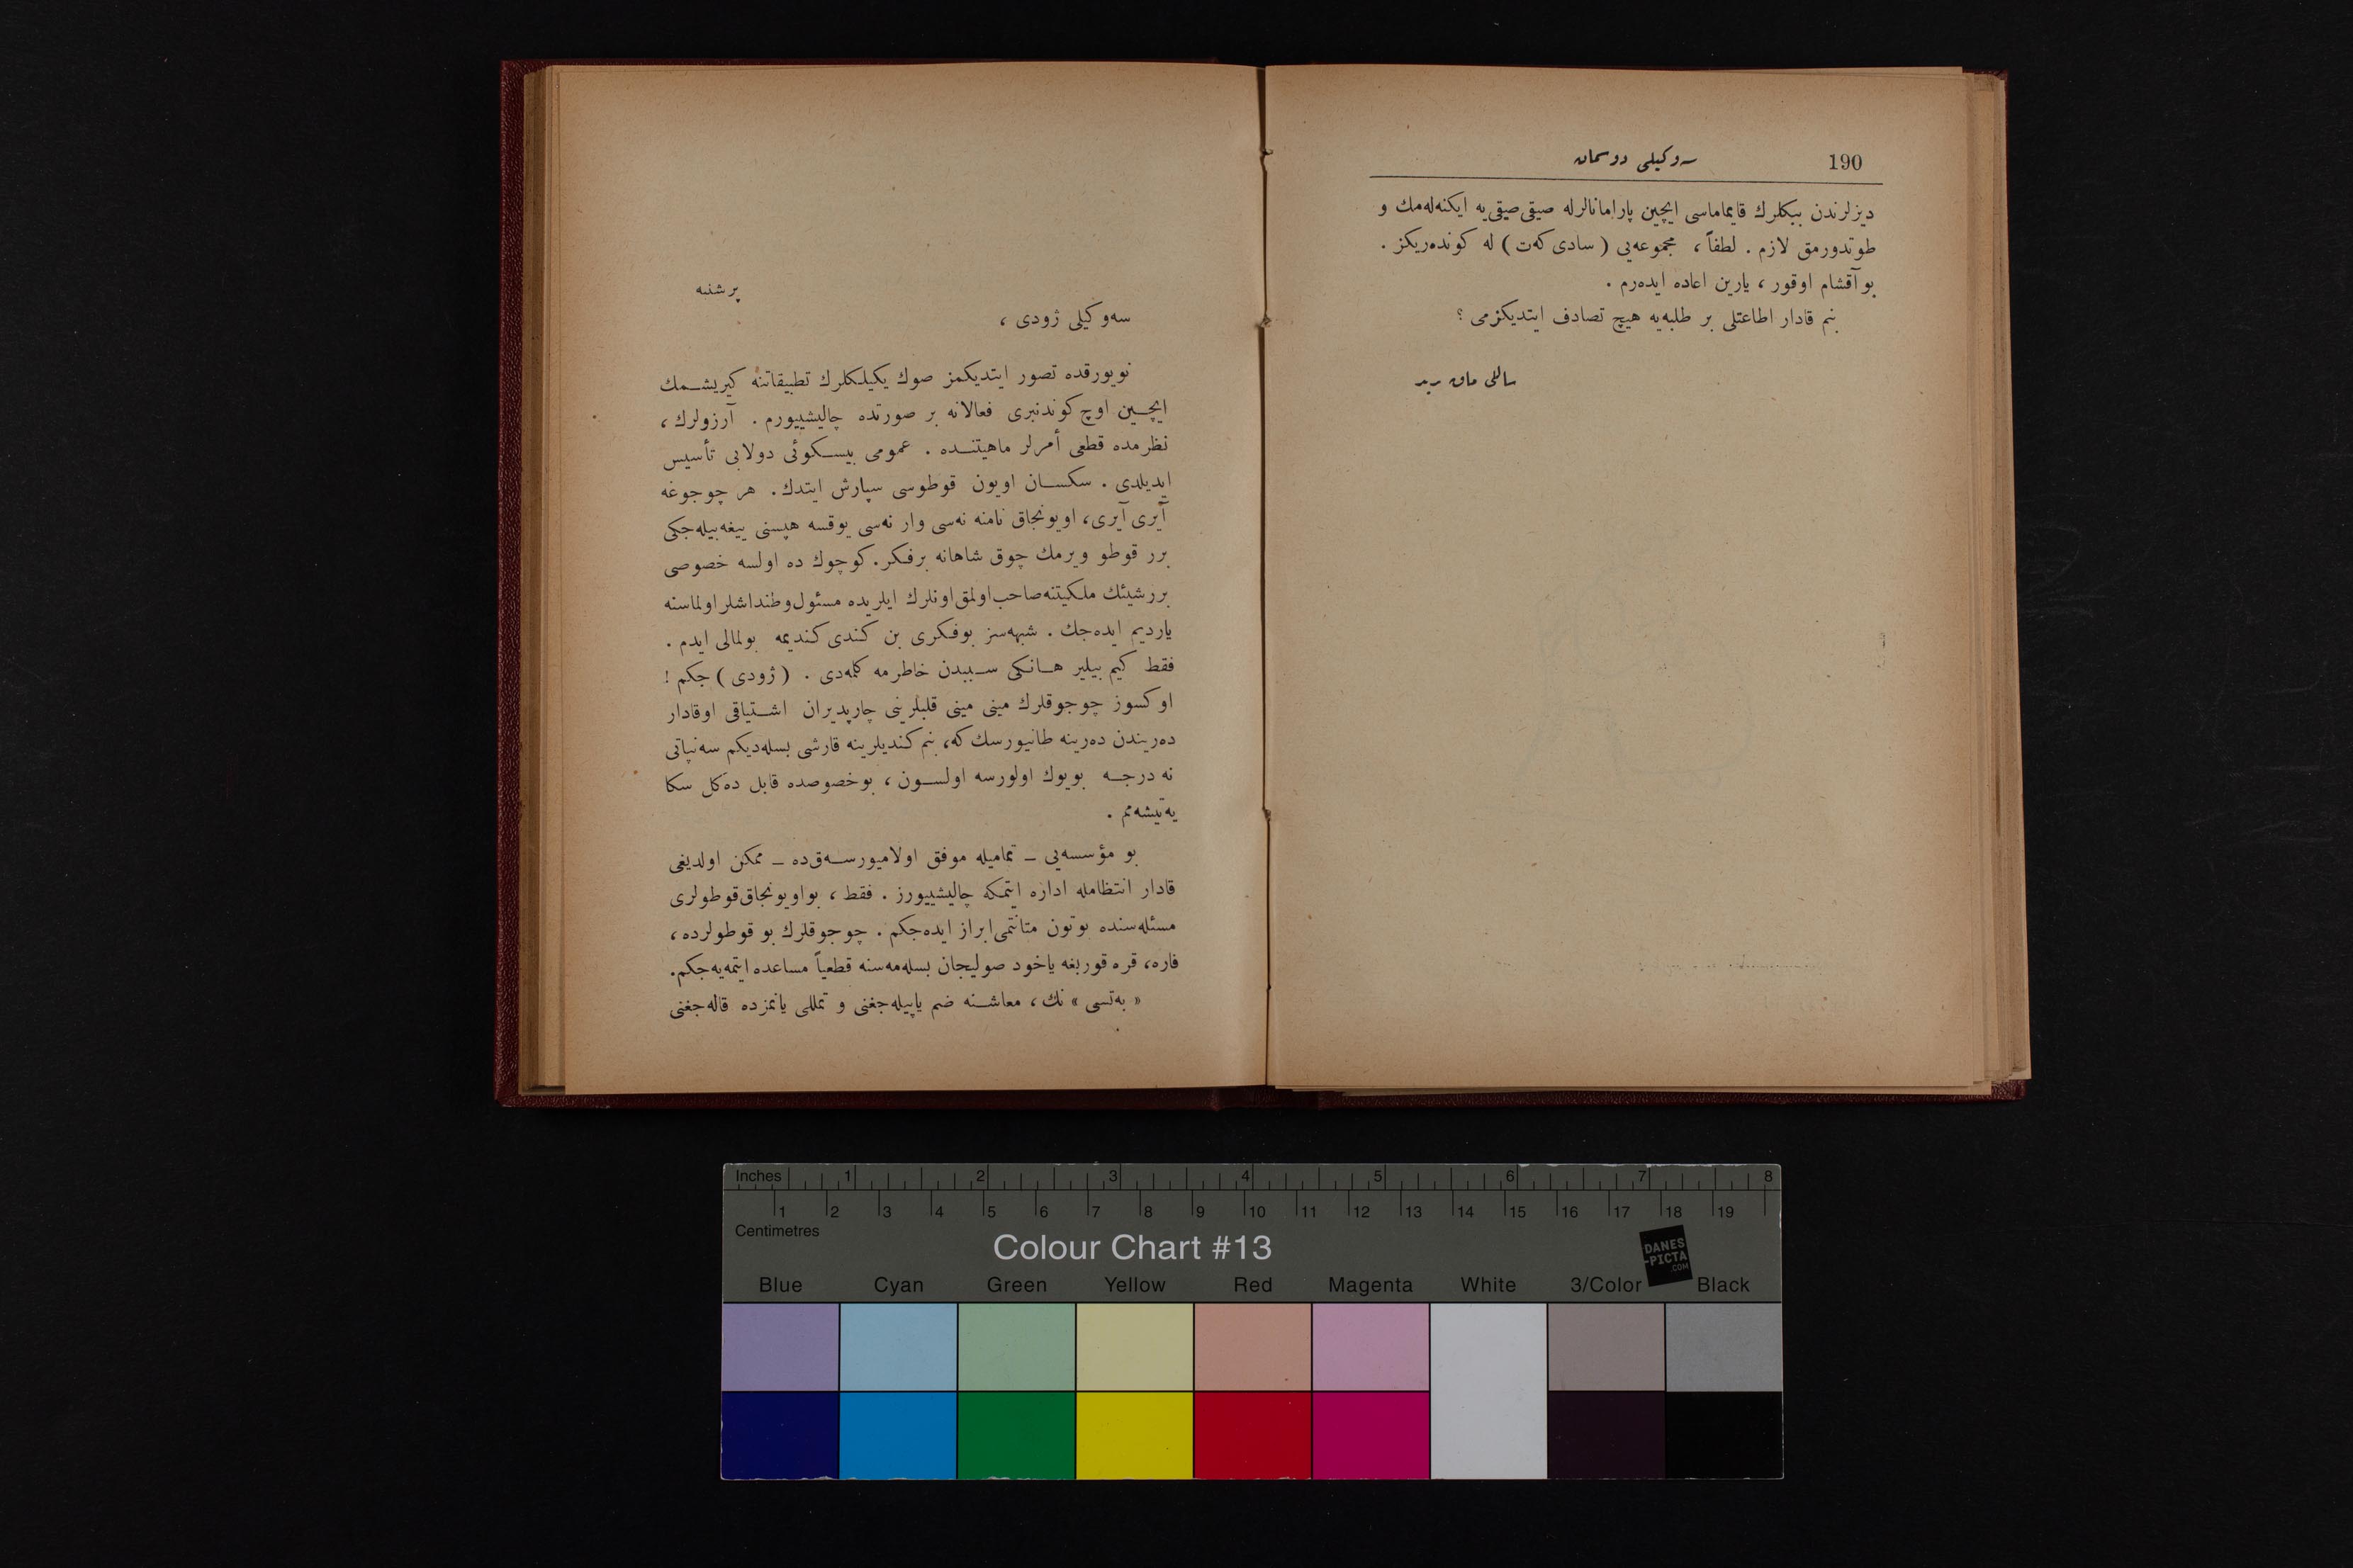 190
سه‌وكیلی دوسمان
دیزلرندن بیكلرك قایماماسی ایچین پارامانالرله صیقی صیقی‌یه ایكنه‌له‌مك و
طوتدورمق لازم . لطفاً ، مجموعه‌یی ( سادی كه‌ت ) له كونده‌ریكز .
بو آقشام اوقور ، یارین اعاده ایده‌رم .
بنم قادار اطاعتلی بر طلبه‌یه هیچ تصادف ایتدیكزمی ؟
ساللی ماق برید
پرشنبه
سه‌وكیلی ژودی ،
نویورقده تصور ایتدیكمز صوك یكیلكلرك تطبیقاتنه كیریشمك
ایچین اوچ كوندنبری فعالانه بر صورتده چالیشییورم . آرزولرك ،
نظرمده قطعی أمرلر ماهیتنده . عمومی بیسكوئی دولابی تأسیس
ایدیلدی . سكسان اویون قوطوسی سپارش ایتدك . هر چوجوغه
آیری آیری ، اویونجاق نامنه نه‌سی وار نه‌سی یوقسه هپسنی ییغه‌بیله‌جكی
برر قوطو ویرمك چوق شاهانه برفكر . كوچوك ده اولسه خصوصی
بررشیئك ملكیتنه صاحب اولمق اونلرك ایلریده مسئول وطنداشلر اولماسنه
یاردیم ایده‌جك . شبهه‌سز بوفكری بن كندی كندیمه بولمالی ایدم .
فقط كیم بیلیر هانكی سببدن خاطرمه كلمه‌دی . ( ژودی ) جكم !
اوكسوز چوجوقلرك مینی مینی قلبلرینی چارپدیران اشتیاقی اوقادار
ده‌ریندن ده‌رینه طانیورسك كه ، بنم كندیلرینه قارشی بسله‌دیكم سه‌نپاتی
نه درجه بویوك اولورسه اولسون ، بوخصوصده قابل ده‌كل سكا
یه‌تیشه‌مم .
بو مؤسسه‌یی ــ تمامیله موفق اولامیورسه‌ق‌ده ــ ممكن اولدیغی
قادار انتظامله اداره ایتمكه چالیشییورز . فقط ، بواویونجاق قوطولری
مسئله‌سنده بوتون متانتمی ابراز ایده‌جكم . چوجوقلرك بو قوطولرده ،
فاره ، قره قوربغه یاخود صولیجان بسله‌مه‌سنه قطعیاً مساعده ایتمه‌یه‌جكم .
« به‌تسی » نك ، معاشنه ضم یاپیله‌جغنی و تمللی یانمزده قاله‌جغنی
Inches 1 2 3 4 5 6 7 8
1 2 3 4 5 6 7 8 9 10 11 12 13 14 15 16 17 18 19
Centimetres
Colour Chart #13
DANES
-PICTA
.COM
Blue Cyan Green Yellow Red Magenta White 3/Color Black